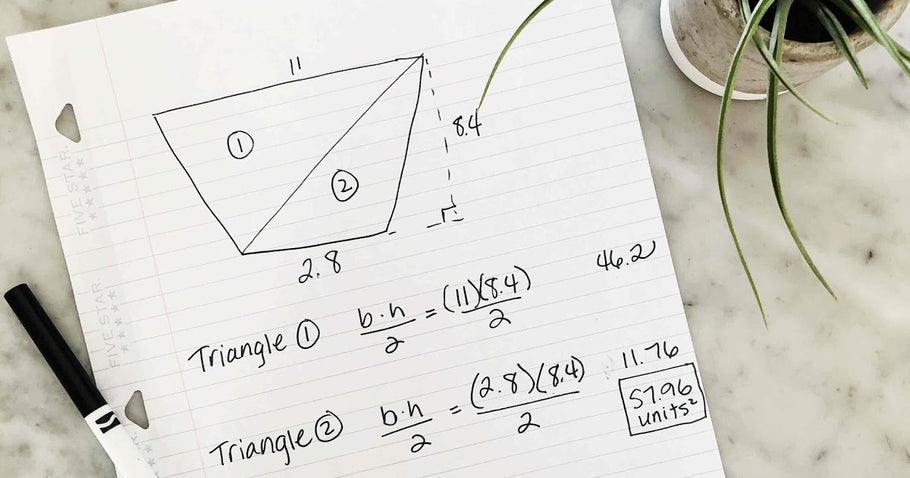 11
8.4
①
②
2.8
46.2
Triangle ① b·h/2 = (11)(8.4)/2
11.76
Triangle ② b·h/2 = (2.8)(8.4)/2
57.96
units²
FIVE STAR
FIVE STAR